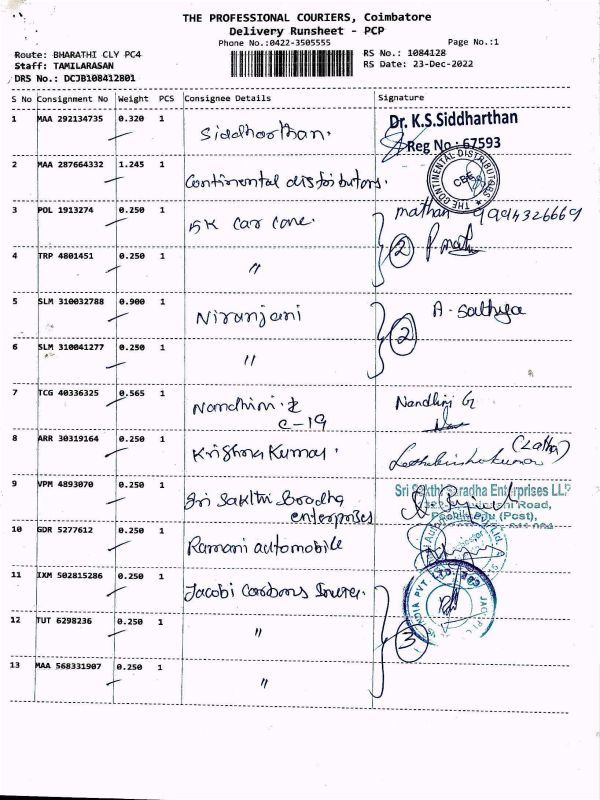 THE PROFESSIONAL COURIERS, Coimbatore
Delivery Runsheet - PCP
Phone No.:0422-3505555
Page No.:1
Route: BHARATHI CLY PC4
Staff: TAMILARASAN
DRS No.: DCJB108412801
RS No.: 1084128
RS Date: 23-Dec-2022
S No Consignment No Weight PCS Consignee Details Signature
1 MAA 292134735 0.320 1 Siddharthan. Dr. K.S.Siddharthan
Reg No: 67593
2 MAA 287664332 1.245 1 Continental distributors. THE CONTINENTAL DISTRIBUTORS CBE
3 POL 1913274 0.250 1 car care. mathan 9994326669
4 TRP 4801451 0.250 1 〃 2
5 SLM 310032788 0.900 1 Niranjani A. Sathya
6 SLM 310041277 0.250 1 〃 2
7 TCG 40336325 0.565 1 Nandhini. Nandhini G
C-19
8 ARR 30319164 0.250 1 Krishna Kumar. (Latha)
9 VPM 4893070 0.250 1 Sri Sakthi Sradha Sri Sakthi Sradha Enterprises LLP
enterprises Road,
(Post),
10 GDR 5277612 0.250 1 Ramani automobile
11 IXM 502815286 0.250 1 Jacobi Carbons PVT. LTD.
12 TUT 6298236 0.250 1 〃 3
13 MAA 568331907 0.250 1 〃